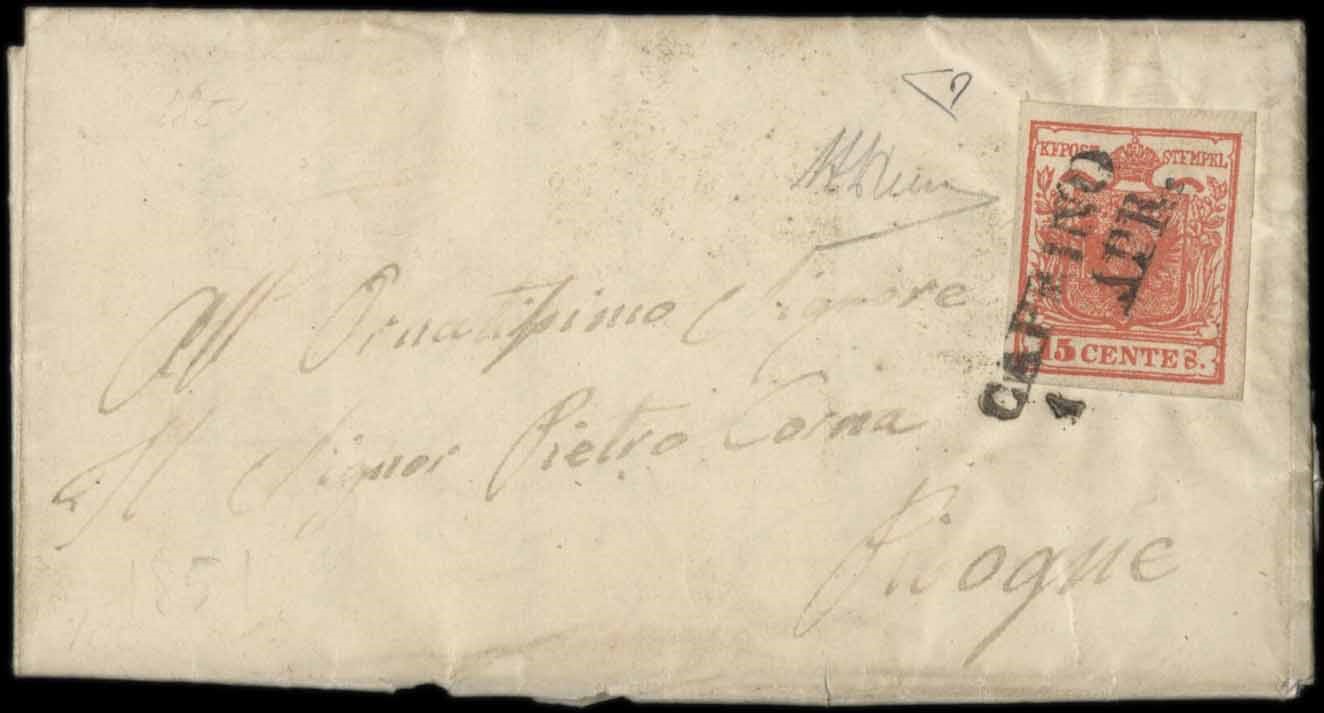 KKPOST STEMPEL
15 CENTES.
CAPRINO
4 APR.
All' Ornatissimo Signore
Il Signor Pietro Corna
1851